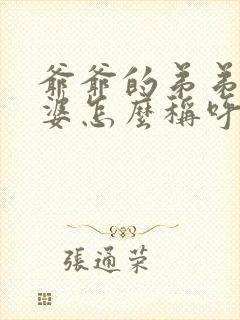 爺爺的弟弟
婆怎麼稱呼
張通荣